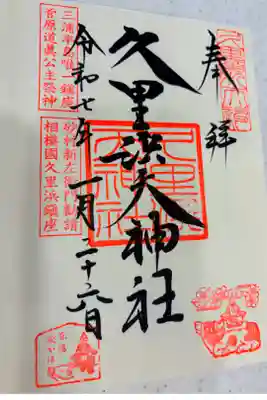 奉拝
久里浜天神社
令和七年一月二十六日
三浦半島唯一鎮座
菅原道眞公主祭神
砂村新左衛門勧請
相模國久里浜鎮座